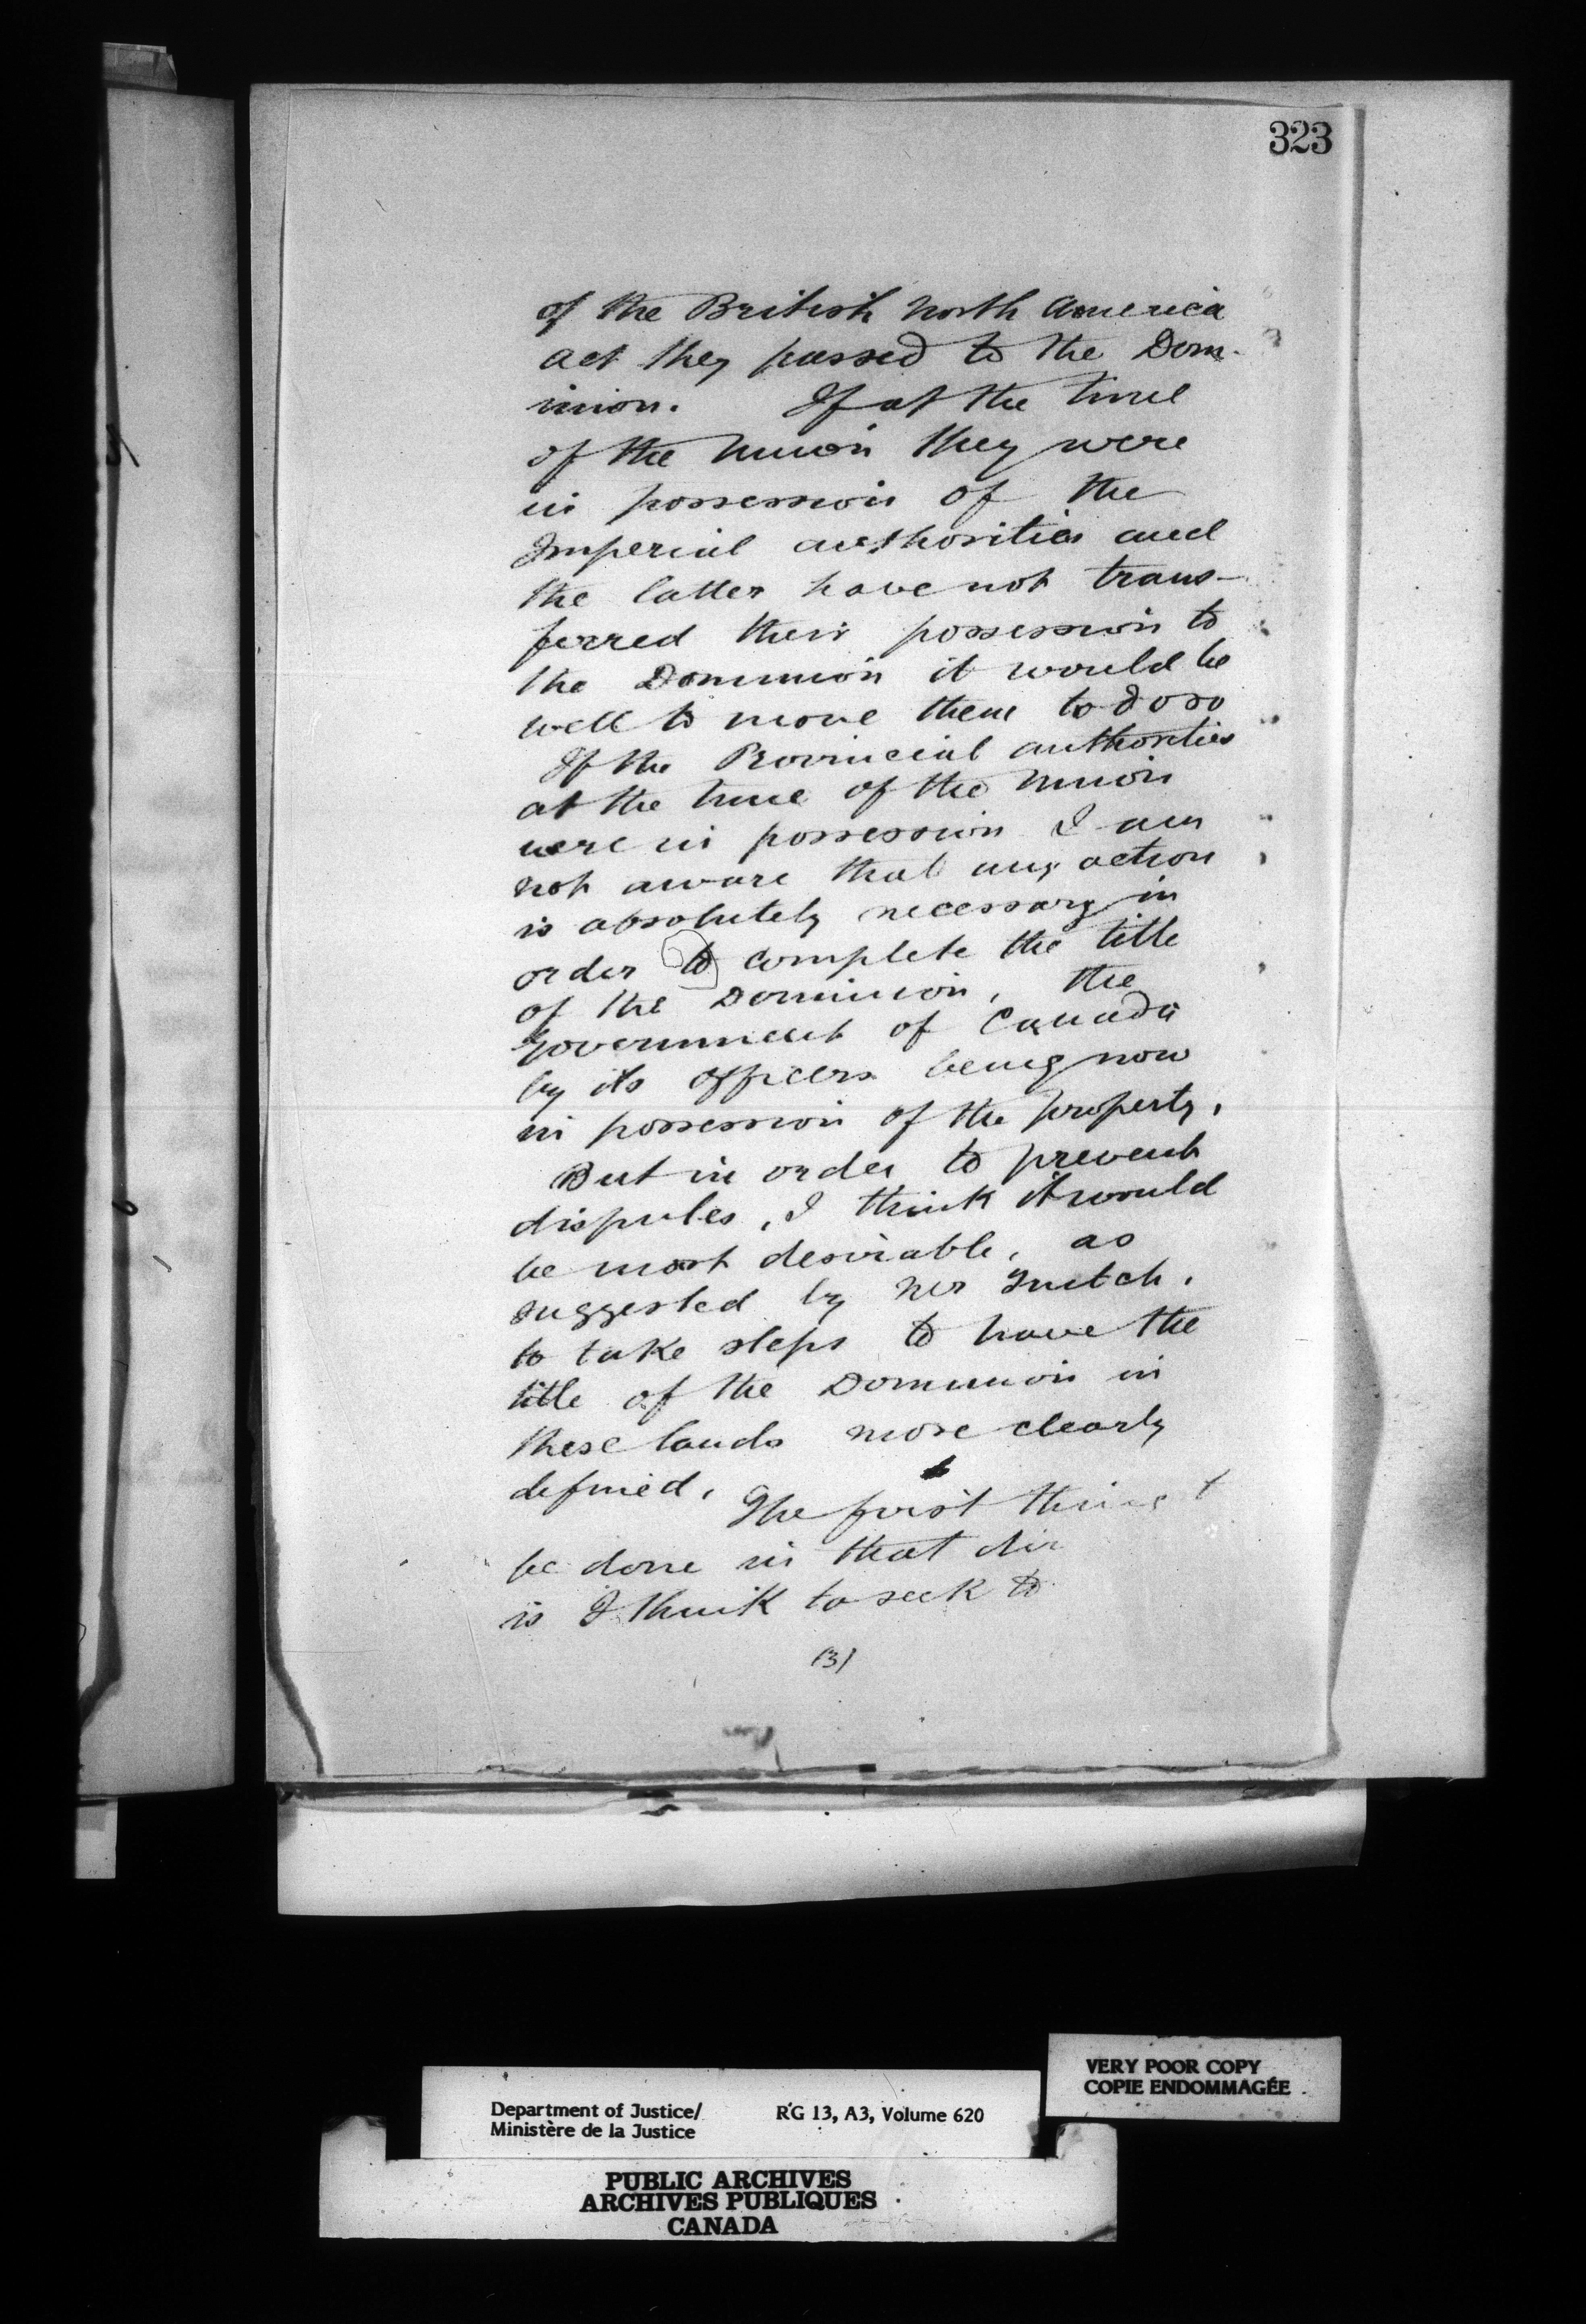 323
of the British North America
act they passed to the Dom-
inion. If at the time
of the Union they were
in possession of the
Imperial authorities and
the latter have not trans-
ferred their possession to
the Dominion it would be
well to move them to do so
If the Provincial authorities
at the time of the Union
were in possession I am
not aware that any action
is absolutely necessary in
order to complete the title
of the Dominion, the
Government of Canada
by its officers being now
in possession of the property,
But in order to prevent
disputes, I think it would
be most desirable, as
suggested by
to take steps to have the
title of the Dominion in
these lands more clearly
defined, The first thing t
be done in that dir
is I think to seek to
(3)
VERY POOR COPY
COPIE ENDOMMAGÉE
Department of Justice/ RG 13, A3, Volume 620
Ministère de la Justice
PUBLIC ARCHIVES
ARCHIVES PUBLIQUES
CANADA